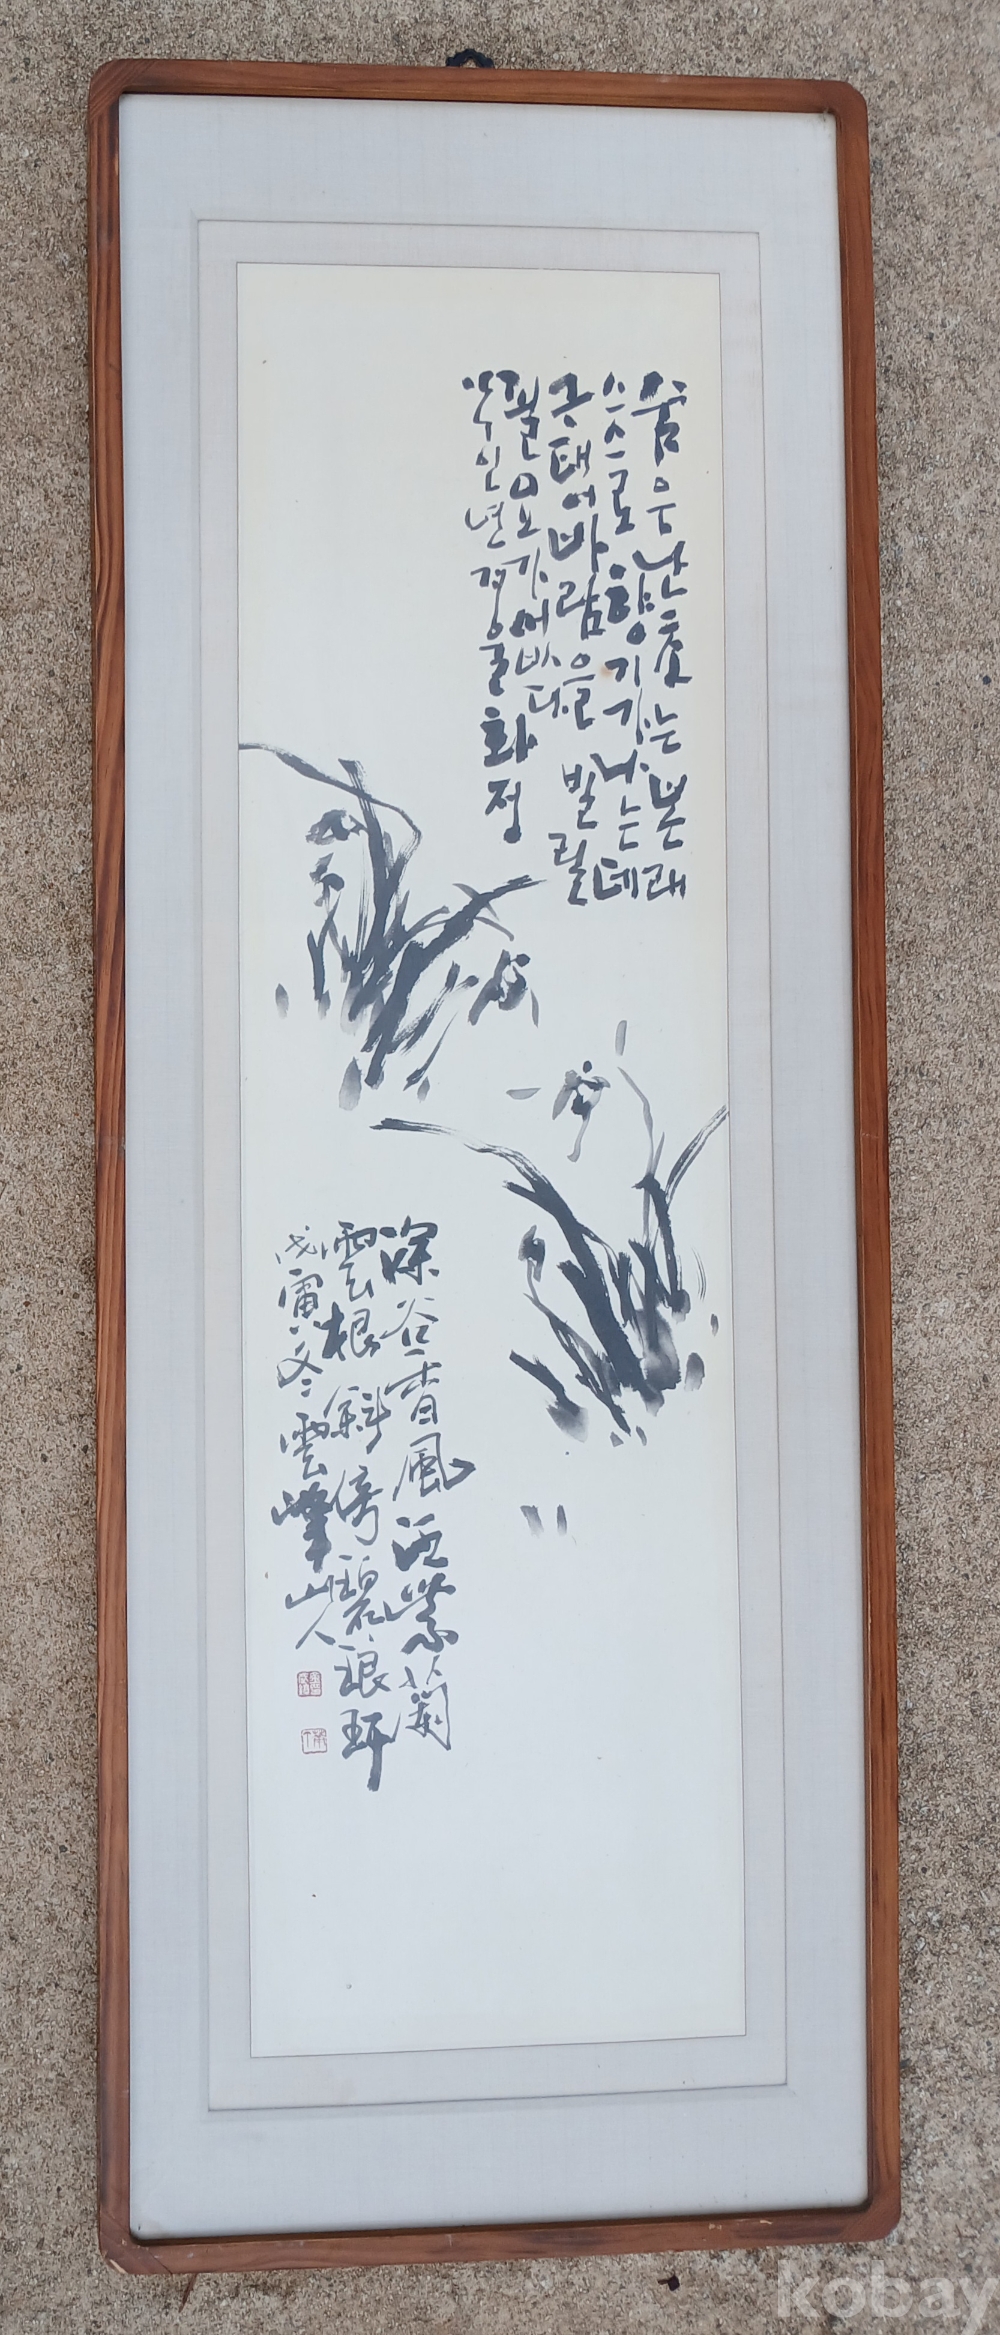 숨은 난초는 본래
스스로 향기가 나는데
굿태여 바람을 빌릴
필요가 어있다
인년 겨울 화정
深谷香風洒紫蘭
雲根斜倚碧琅玕
戊寅冬 雲峰山人
kobay